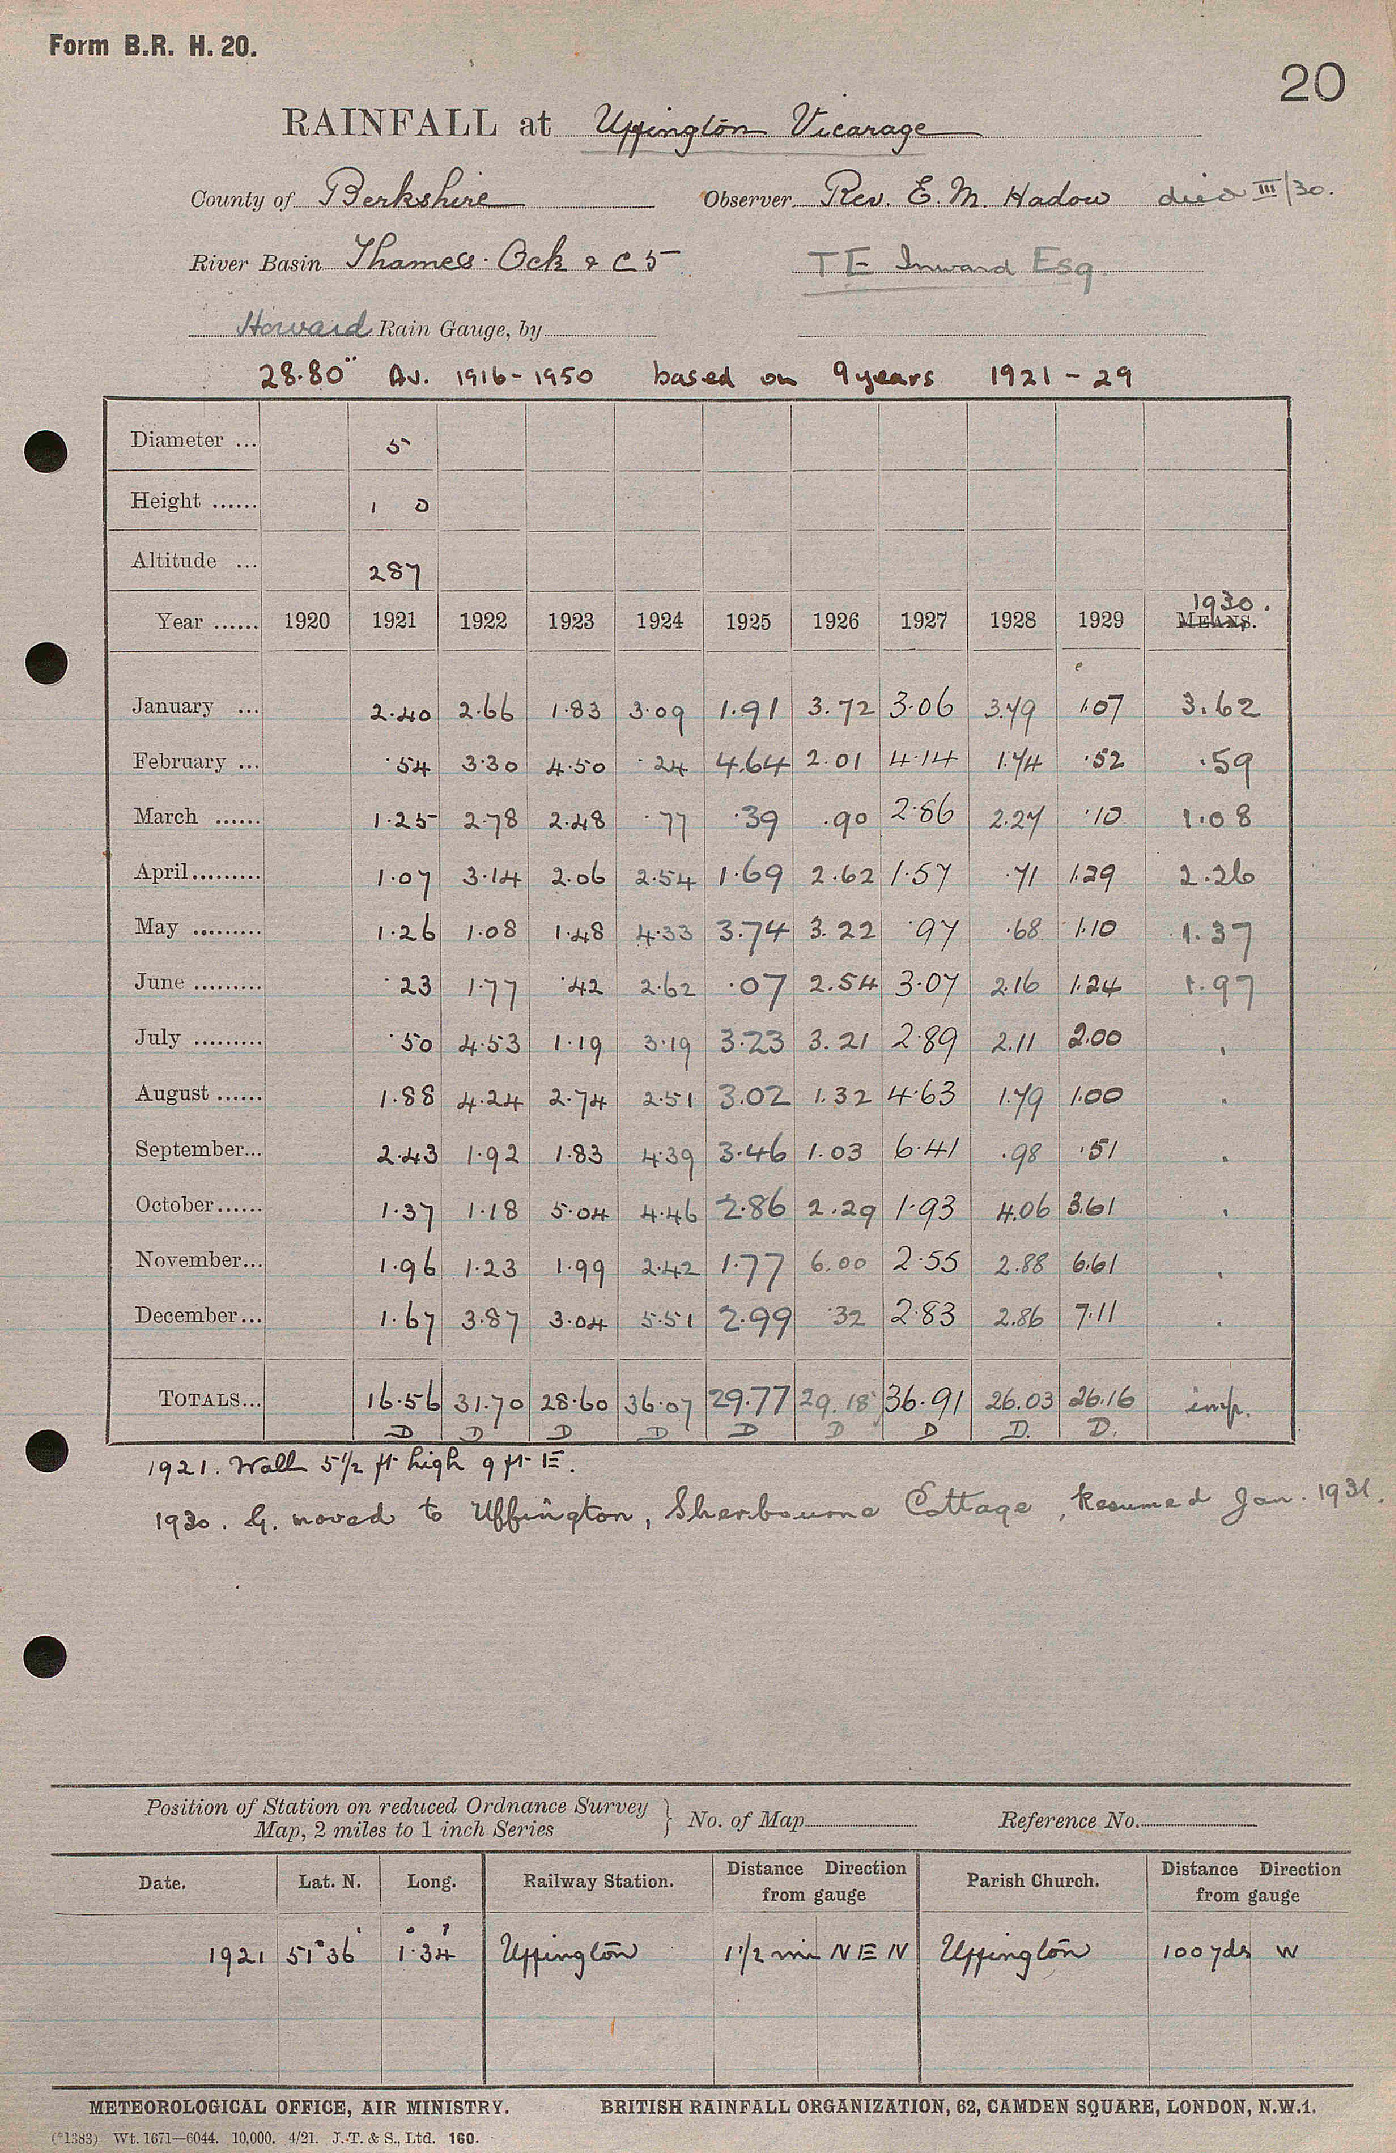 Form B.R. H. 20.
20
RAINFALL at Uffington Vicarage
County of Berkshire Observer Rev. E. M. Hadow died III/30.
River Basin Thames. Ock & C 5 T E Inward Esq.
Howard Rain Gauge, by
28.80" Av. 1916-1950 based on 9 years 1921 - 29
Diameter ... 5
Height ...... 1 0
Altitude ... 287
1930.
Year ...... 1920 1921 1922 1923 1924 1925 1926 1927 1928 1929 MEANS.
January ... 2.40 2.66 1.83 3.09 1.91 3.72 3.06 3.49 1.07 3.62
February ... .54 3.30 4.50 .24 4.64 2.01 4.14 1.74 .52 .59
March ...... 1.25 2.78 2.48 .77 .39 .90 2.86 2.27 .10 1.08
April......... 1.07 3.14 2.06 2.54 1.69 2.62 1.57 .71 1.29 2.26
May ......... 1.26 1.08 1.48 4.33 3.74 3.22 .97 .68 1.10 1.37
June ......... .23 1.77 .42 2.62 .07 2.54 3.07 2.16 1.24 1.97
July ......... .50 4.53 1.19 3.19 3.23 3.21 2.89 2.11 2.00 .
August ...... 1.88 4.24 2.74 2.51 3.02 1.32 4.63 1.79 1.00 .
September... 2.43 1.92 1.83 4.39 3.46 1.03 6.41 .98 .51 .
October...... 1.37 1.18 5.04 4.46 2.86 2.29 1.93 4.06 3.61 .
November... 1.96 1.23 1.99 2.42 1.77 6.00 2.55 2.88 6.61 .
December... 1.67 3.87 3.04 5.51 2.99 .32 2.83 2.86 7.11 .
TOTALS... 16.56 31.70 28.60 36.07 29.77 29.18 36.91 26.03 26.16 imp.
D D D D D D D D. D.
1921. Wall 5 1/2 ft high 9 ft E.
1930. G. moved to Uffington, Sherbourne Cottage, Resumed Jan. 1931.
Position of Station on reduced Ordnance Survey
Map, 2 miles to 1 inch Series } No. of Map Reference No.
Date. Lat. N. Long. Railway Station. Distance Direction from gauge Parish Church. Distance Direction from gauge
1921 51°36' 1°34' Uffington 1 1/2 mi N E N Uffington 100 yds W
METEOROLOGICAL OFFICE, AIR MINISTRY. BRITISH RAINFALL ORGANIZATION, 62, CAMDEN SQUARE, LONDON, N.W.1.
(*1383) Wt. 1671—6044. 10,000. 4/21. J. T. & S., Ltd. 160.